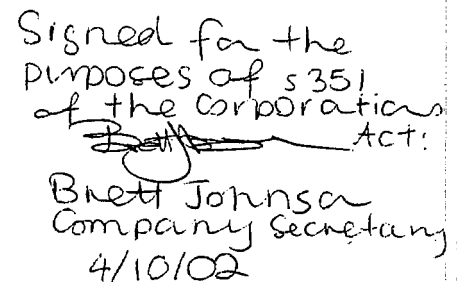 Signed for the
purposes of s351
of the Corporations
Act:
Brett Johnson
Company Secretary
4/10/02